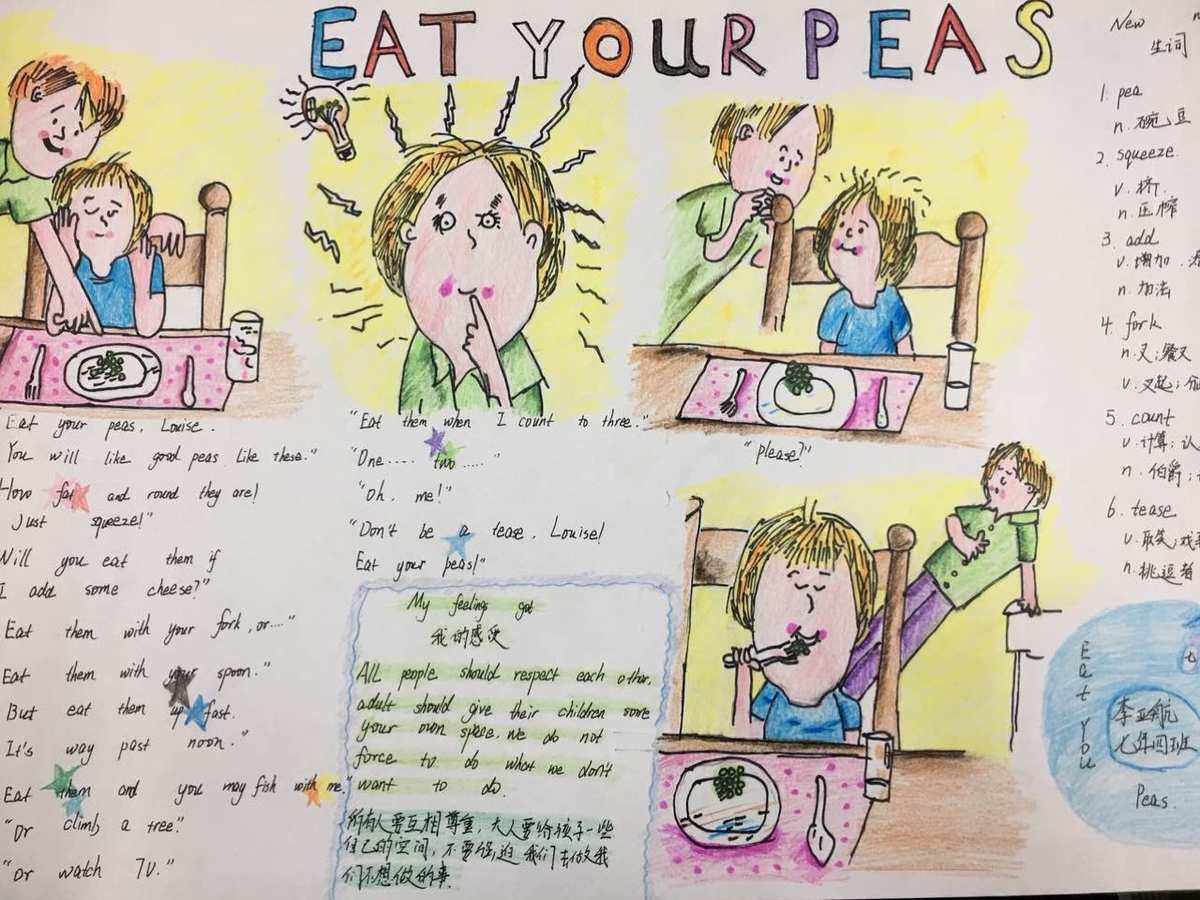 EAT YOUR PEAS
"Eat your peas, Louise.
You will like good peas like these."
How fat and round they are!
Just squeeze!"
Will you eat them if
I add some cheese?"
Eat them with your fork, or...."
Eat them with your spoon."
But eat them up fast.
It's way past noon."
Eat them and you may fish with me."
"Or climb a tree."
"Or watch TV."
"Eat them when I count to three."
"One..... two ....."
"Oh, me!"
"Don't be a tease, Louise!
Eat your peas!"
"please?"
My feelings got
我的感受
All people should respect each other.
adult should give their children some
your own space. we do not
force to do what we don't
want to do.
所有人要互相尊重,大人要给孩子一些
自己的空间,不要强迫我们去做我
们不想做的事.
New
生词
1. pea
n. 豌豆
2. squeeze.
v. 挤.
n. 压榨
3. add
v. 增加.
n. 加法
4. fork
n. 叉;餐叉
v. 叉起;
5. count
v. 计算;认
n. 伯爵;
6. tease
v. 取笑;戏
n. 挑逗者
Eat you
李亚航
七年四班
Peas.